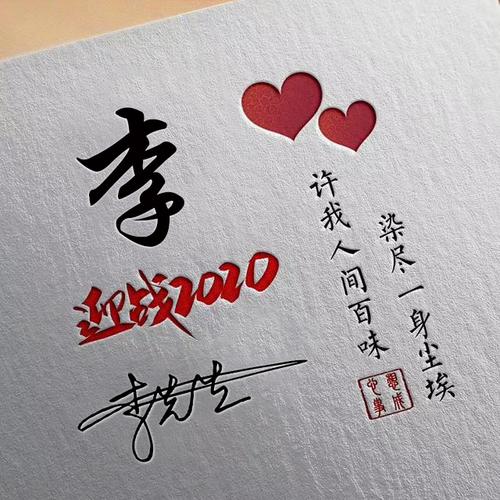 李
迎战2020
李先生
染尽一身尘埃
许我人间百味
心想
事成